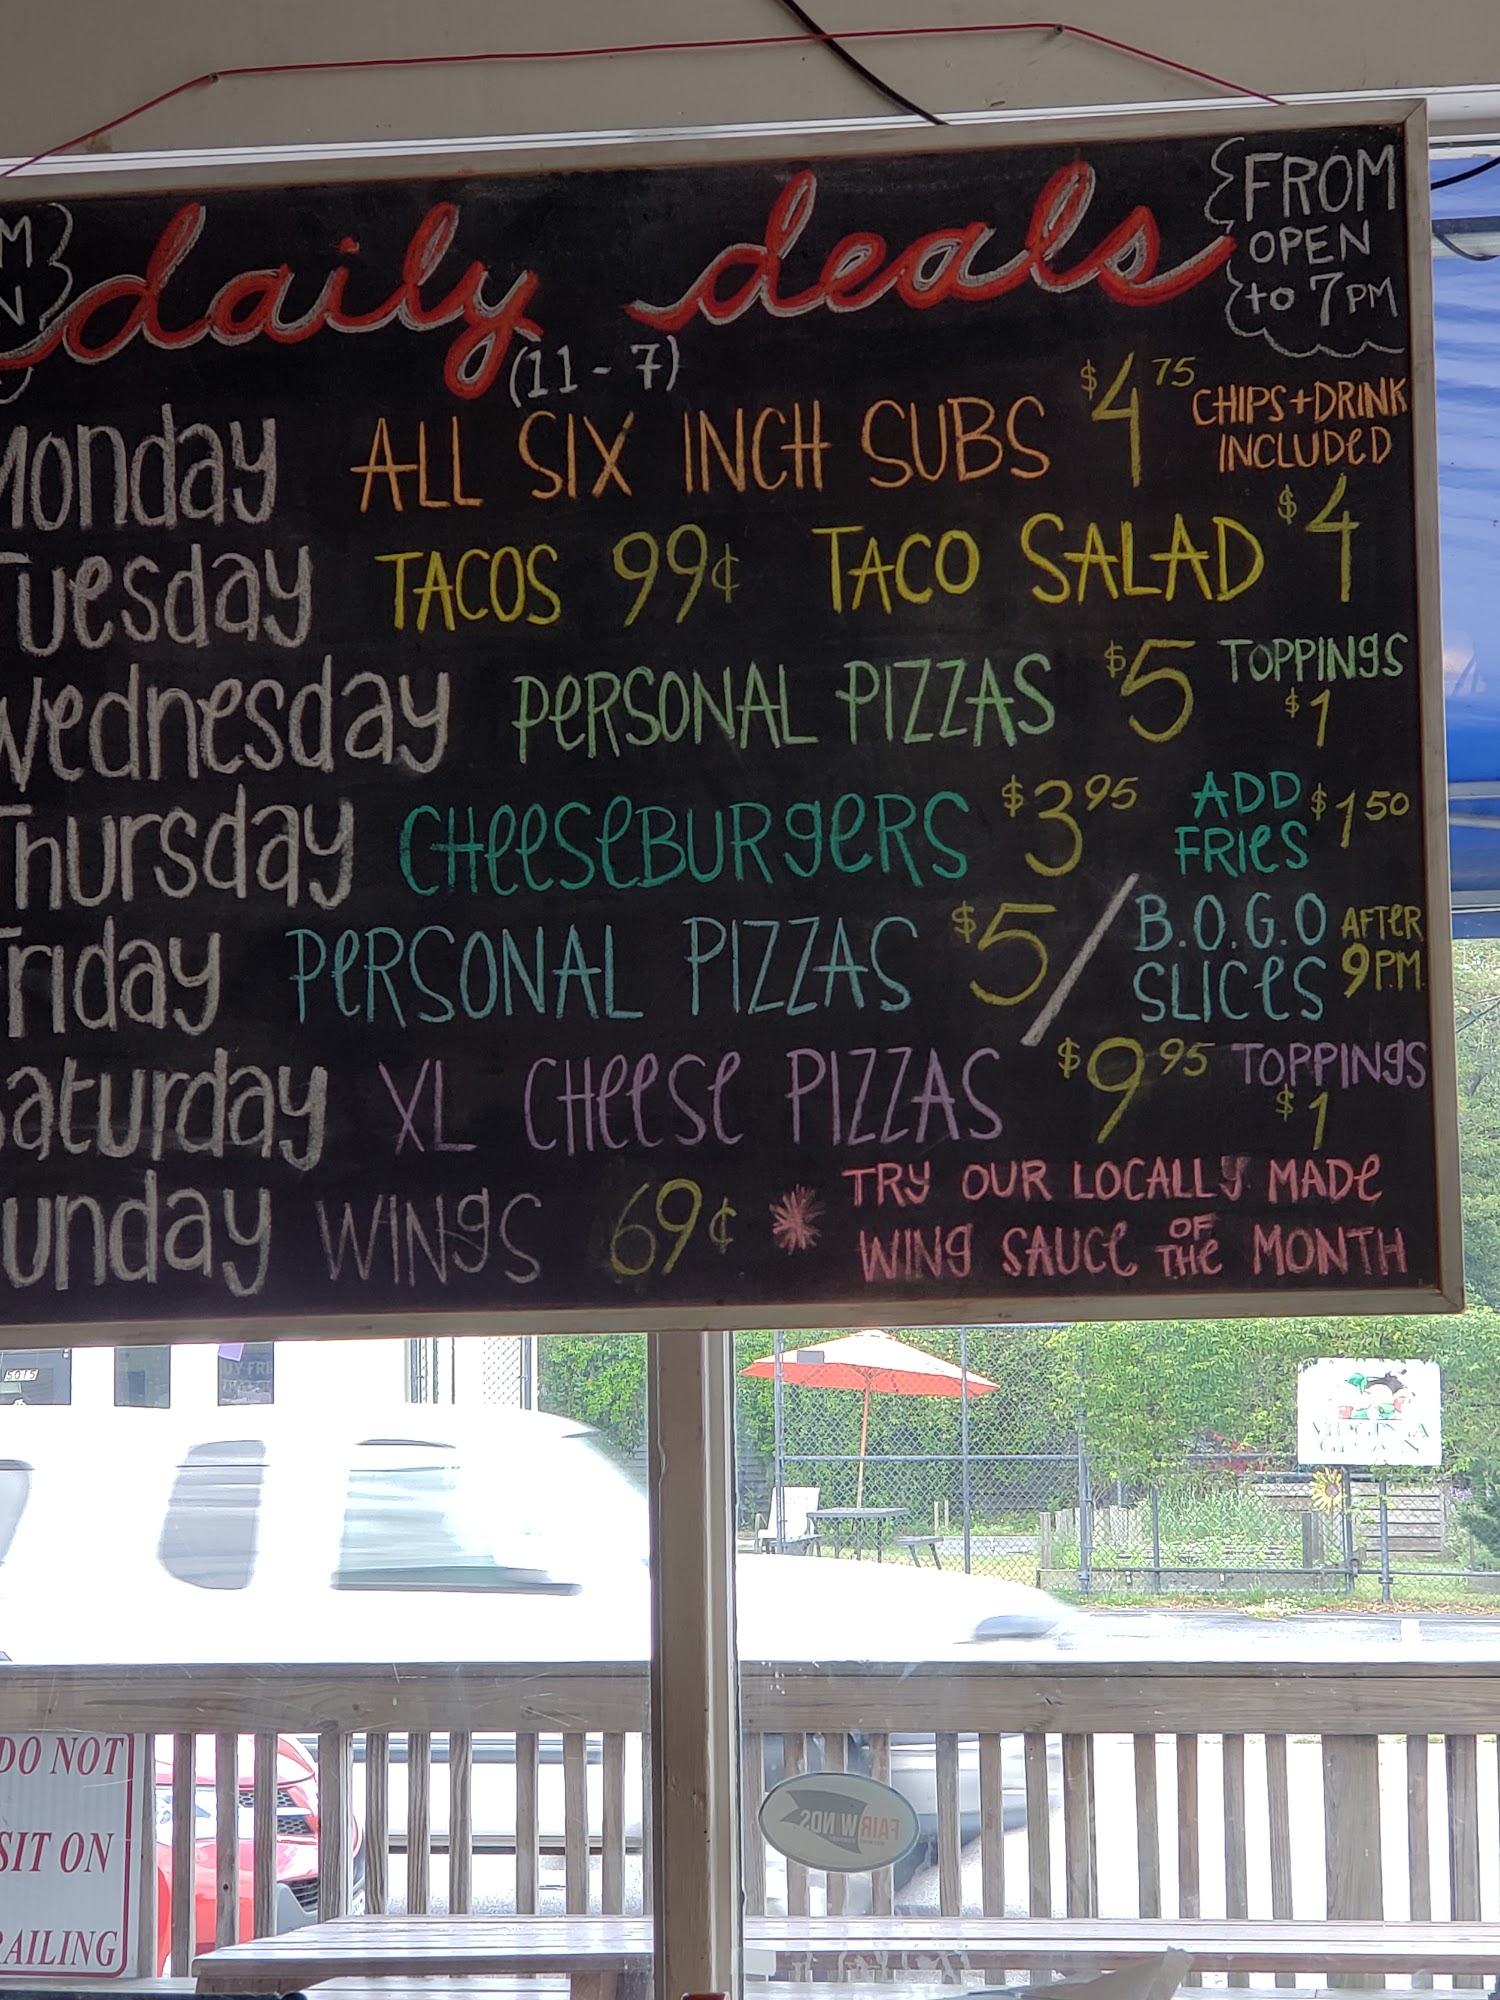 daily deals
FROM
OPEN
to 7PM
(11-7)
Monday ALL SIX INCH SUBS $4.75 CHIPS+DRINK
INCLUDED
Tuesday TACOS 99¢ TACO SALAD $4
Wednesday PERSONAL PIZZAS $5 TOPPINGS
$1
Thursday CHEESEBURGERS $3.95 ADD
FRIES $1.50
Friday PERSONAL PIZZAS $5/ B.O.G.O
SLICES AFTER
9P.M.
Saturday XL CHEESE PIZZAS $9.95 TOPPINGS
$1
Sunday WINGS 69¢ * TRY OUR LOCALLY MADE
WING SAUCE OF THE MONTH
5015
VIRGINIA
GROWN
DO NOT
SIT ON
RAILING
FAIRWINDS